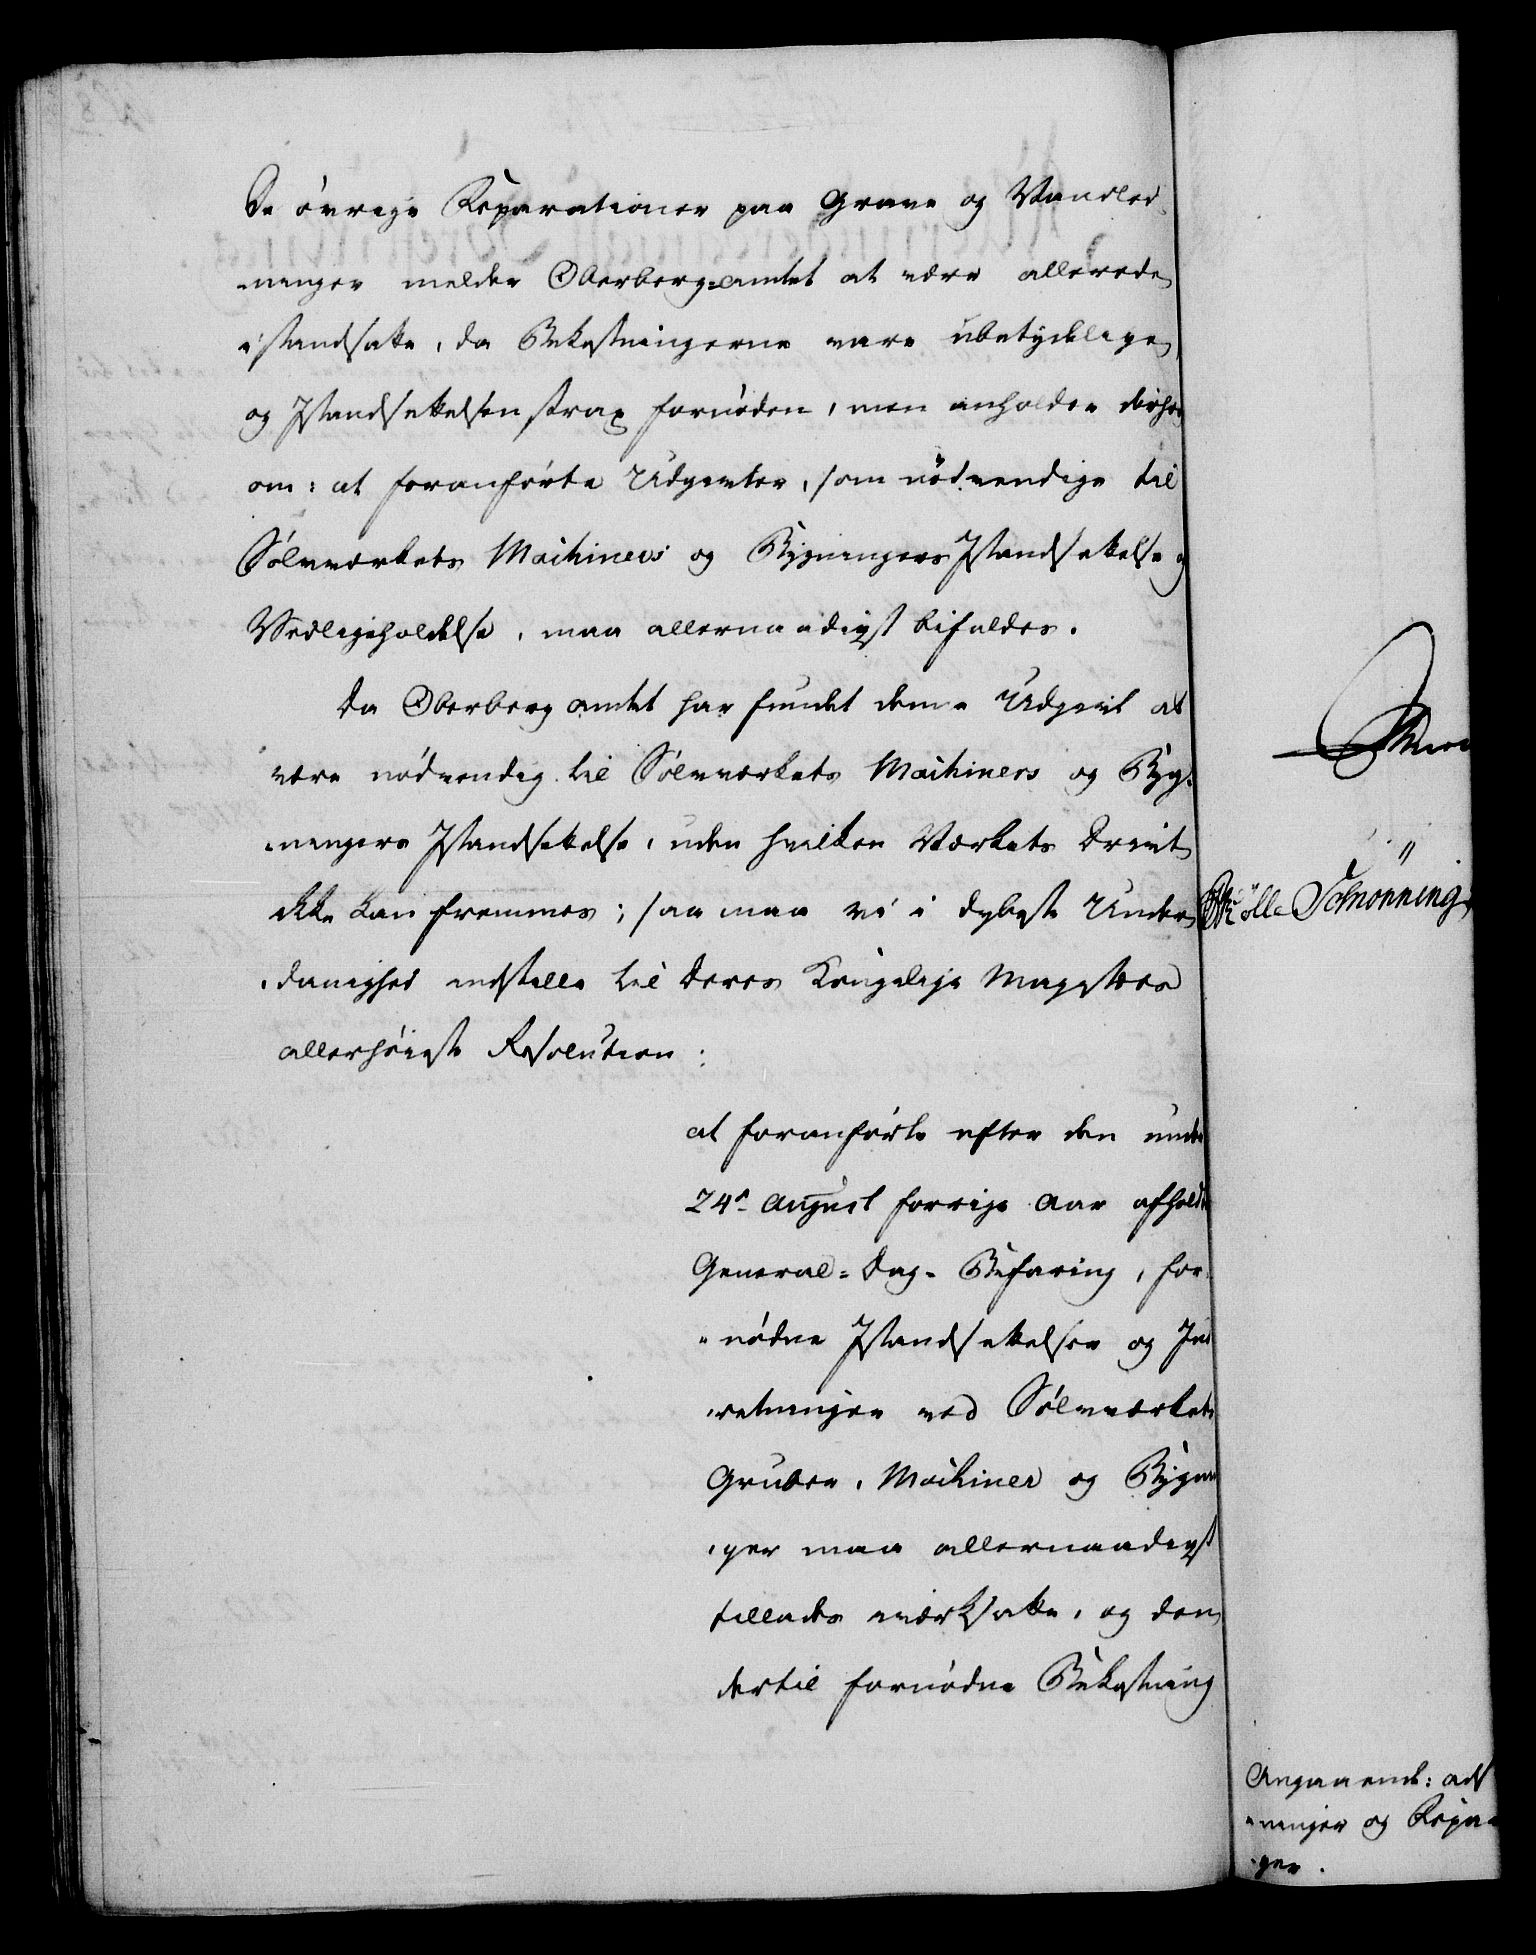 De övrige Reparationer paa Grave og Vandled
ninger melder Oberberg-amtet at være allerede
istandsatte, da Bekostningerne vare ubetydelige
og Istandsettelsen strax fornøden, men anholder derhos
om: at foranførte Udgivter, som nødvendige til
Sølvværkets Machiners og Bygningers Istandsettelse og
Vedligeholdelse, maa allernaadigst bifaldes.
Da Oberberg amtet har fundet denne Udgivt at
være nødvendig til Sølvværkets Machiners og Byg-
ningers Istandsettelse, uden hvilken Værkets Drivt
ikke kan fremmes; saa maa vi i dybeste Under
danighed indstille til Deres Kongelige Majestæts
allerhøieste Resolution:
at foranførte efter den under
24de August forrige Aar afholdte
General-Dag-Befaring, for-
nødne Istandsettelser og Ind
retninger ved Sølvværkets
Gruber, Machiner og Bygnin
ger maa allernaadigst
tillades værksatte, og den
dertil fornødne Bekostning
Schrönning
Angaaende: ad
ninger og Repa
ger.